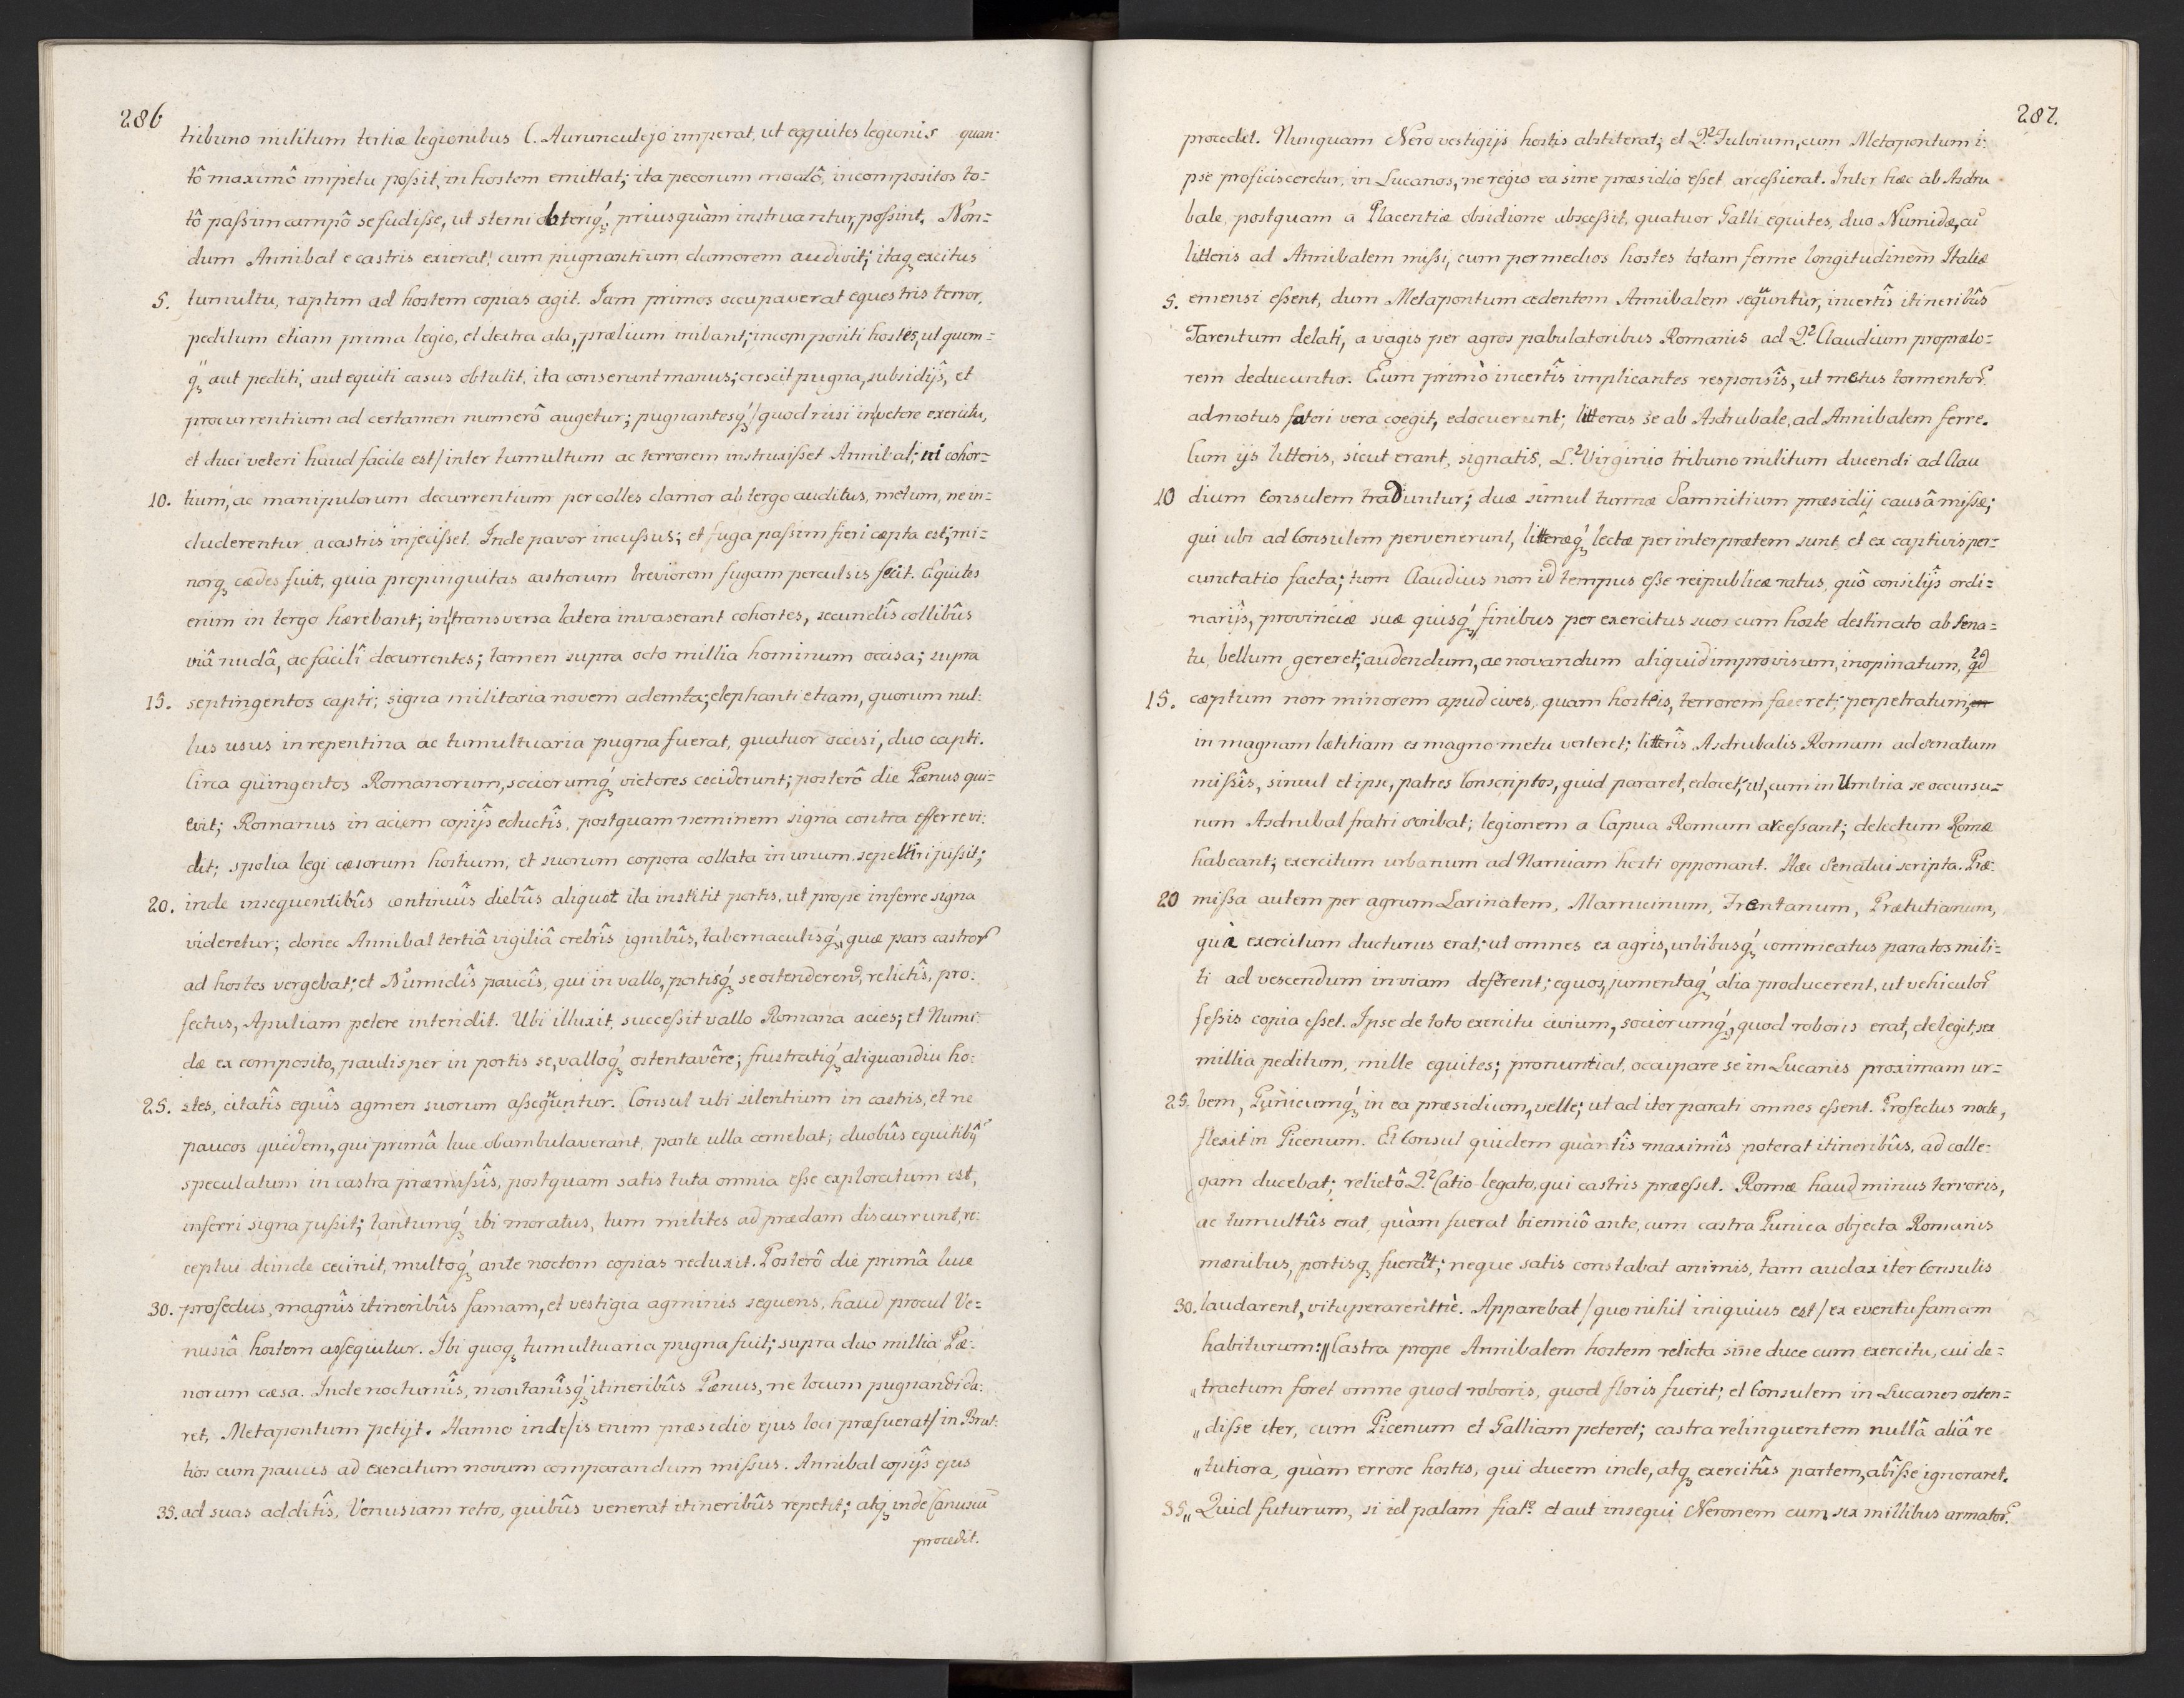 286
tribuno militum tertiæ legionibus C. Aurunculejo imperat, ut eqquites legionis quan:
tô maximô impetu poſsit, in hostem emittat; ita pecorum modô, incompositos to=
tô paſsim campô se fudiſse, ut sterni obteriq́ꝫ, priusquàm instruantur, poſsint. Non=
dum Annibal e castris exierat, cum pugnantium clamorem audivit; itaqꝫ excitus
5. tumultu, raptim ad hostem copias agit. Jam primos occupaverat equestris terror,
peditum etiam prima legio, et dextra ala, prælium inibant; incompositi hostes, ut quem=
qꝫ aut pediti, aut equiti casus obtulit, ita conserunt manus; crescit pugna, subsidijs, et
procurrentium ad certamen numerô augetur; pugnantesq́ꝫ /quod nisi in vetere exercitu,
et duci veteri haud facile est/ inter tumultum ac terrorem instruxiſset Annibal; ni cohor=
10. tium, ac manipulorum decurrentium per colles clamor ab tergo auditus, metum, ne in=
cluderentur a castris injeciſset. Inde pavor incuſsus; et fuga paſsim fieri cæpta est; mi=
norqꝫ cædes fuit, quia propinquitas castrorum breviorem fugam perculsis fecit. Equites
enim in tergo hærebant; in transversa latera invaserant cohortes, secundîs collibûs
viâ nudâ, ac facilî decurrentes; tamen supra octo millia hominum occisa; supra
15. septingentos capti; signa militaria novem ademta; elephanti etiam, quorum nul:
lus usus in repentina ac tumultuaria pugna fuerat, quatuor occisi, duo capti.
Circa quingentos Romanorum, sociorumq́ꝫ victores ceciderunt; posterô die Pænus qui=
evit; Romanus in aciem copijs eductîs, postquam neminem signa contra efferre vi:
dit; spolia legi cæsorum hostium, et suorum corpora collata in unum sepeliri juſsit;
20. inde insequentibûs continuîs diebûs aliquot ita institit portis, ut prope inferre signa
videretur; donec Annibal tertiâ vigiliâ crebrîs ignibûs, tabernaculisq́ꝫ, quæ pars castror
ad hostes vergebat; et Numidîs paucîs, qui in vallo, portisq́ꝫ se ostenderent, relictîs, pro:
fectus, Apuliam petere intendit. Ubi illuxit, succeſsit vallo Romana acies; et Numi:
dæ ex composito, paulisper in portis se, valloq́ꝫ ostentavêre; frustratiq́ꝫ aliquandiu ho:
25. stes, citatîs equîs agmen suorum aſsequuntur. Consul ubi silentium in castris, et ne
paucos quidem, qui primâ luce obambulaverant, parte ulla cernebat; duobûs equitibꝫ
speculatum in castra præmiſsîs, postquam satis tuta omnia eſse exploratum est,
inferri signa juſsit; tantumq́ꝫ ibi moratus, tum milites ad prædam discurrunt, re:
ceptui deinde cecinit, multoq́ꝫ ante noctem copias reduxit. Posterô die primâ luce
30. profectus, magnîs itineribûs famam, et vestigia agminis sequens, haud procul Ve=
nusiâ hostem aſsequitur. Ibi quoqꝫ tumultuaria pugna fuit; supra duo millia Pæ:
norum cæsa. Inde nocturnîs, montanîsq́ꝫ itineribûs Pænus, ne locum pugnandi da:
ret, Metapontum petijt. Hanno inde /is enim præsidio ejus loci præfuerat/ in Brut:
tios cum paucis ad exercitum novum comparandum miſsus. Annibal copijs ejus
35. ad suas additîs, Venusiam retro, quibûs venerat itineribûs repetit; atqꝫ inde Canusiū
procedit.
287.
procedet. Nunquam Nero vestigijs hostis abstiterat; et Q. Fulvium, cum Metapontum i:
pse proficisceretur, in Lucanos, ne regio ea sine præsidio eſset arceſsierat. Inter hæc ab Asdru
bale, postquam a Placentiæ obsidione absceſsit, quatuor Galli equites, duo Numidæ, cū
litteris ad Annibalem miſsi, cum per medios hostes totam ferme longitudinem Italiæ
5. emensi eſsent, dum Metapontum cedentem Annibalem sequuntur, incertîs itineribûs
Tarentum delati, a vagis per agros pabulatoribus Romanis ad Q. Claudium proprælo=
rem deducuntur. Eum primò incertîs implicantes responsîs, ut metus tormentor
admotus fateri vera coegit, edocuerunt; litteras se ab Asdrubale, ad Annibalem ferre.
Cum ijs litteris, sicut erant, signatis, L. Virginio tribuno militum ducendi ad Clau
10 dium Consulem traduntur; duæ simul turmæ Samnitium præsidij causâ miſsæ;
qui ubi ad Consulem pervenerunt, litteræq́ꝫ lectæ per interprætem sunt, et ex captivis per:
cunctatio facta; tum Claudius non id tempus eſse reipublicæ ratus, quô consilijs ordi=
narijs, provinciæ suæ quisq́ꝫ finibus per exercitus suos cum hoste destinato ab sena=
tu, bellum gereret; audendum, ac novandum aliquid improvisum, inopinatum, qd
15. cæptum non minorem apud cives, quam hosteis, terrorem faceret; perpetratum,
in magnam lætitiam ex magno metu verteret; litterîs Asdrubalis Romam ad senatum
miſsîs, simul et ipse, patres Conscriptos, quid pararet, edocet; ut, cum in Umbria se occursu=
rum Asdrubal fratri scribat; legionem a Capua Romam arceſsant; delectum Romæ
habeant; exercitum urbanum ad Narniam hosti opponant. Hæc Senatui scripta. Præ:
20 miſsa autem per agrum Larinatem, Marrucinum, Frentanum, Prætutianum,
quà exercitum ducturus erat; ut omnes ex agris, urbibusq́ꝫ commeatus paratos mili=
ti ad vescendum in viam deferent; equos, jumentaq́ꝫ alia producerent, ut vehiculor
feſsis copia eſset. Ipse de toto exercitu civium, sociorumq́ꝫ, quod roboris erat, delegit, sex
millia peditum, mille equites; pronuntiat, occupare se in Lucanis proximam ur=
25. bem, Punicumq́ꝫ in ea præsidium, velle; ut ad iter parati omnes eſsent. Profectus nocte,
flexit in Picenum. Et Consul quidem quàntîs maximîs poterat itineribûs, ad colle:
gam ducebat; relictô Q. Catio legato, qui castris præeſset. Romæ haud minus terroris,
ac tumultûs erat, quàm fuerat bienniô ante, cum castra Punica objecta Romanis
mænibus, portisqꝫ fuerant; neque satis constabat animis, tam audax iter Consulis
30. laudarent, vituperarentnè. Apparebat /quo nihil iniquius est/ ex eventu famam
habiturum: „Castra prope Annibalem hostem relicta sine duce cum exercitu, cui de=
„tractum foret omne quod roboris, quod floris fuerit; et Consulem in Lucanos osten=
„diſse iter, cum Picenum et Galliam peteret; castra relinquentem nullâ aliâ re
„tutiora, quàm errore hostis, qui ducem inde, atqꝫ exercitûs partem, abîſse ignoraret.
35„ Quid futurum, si id palam fiat? et aut insequi Neronem cum sex millibus armator